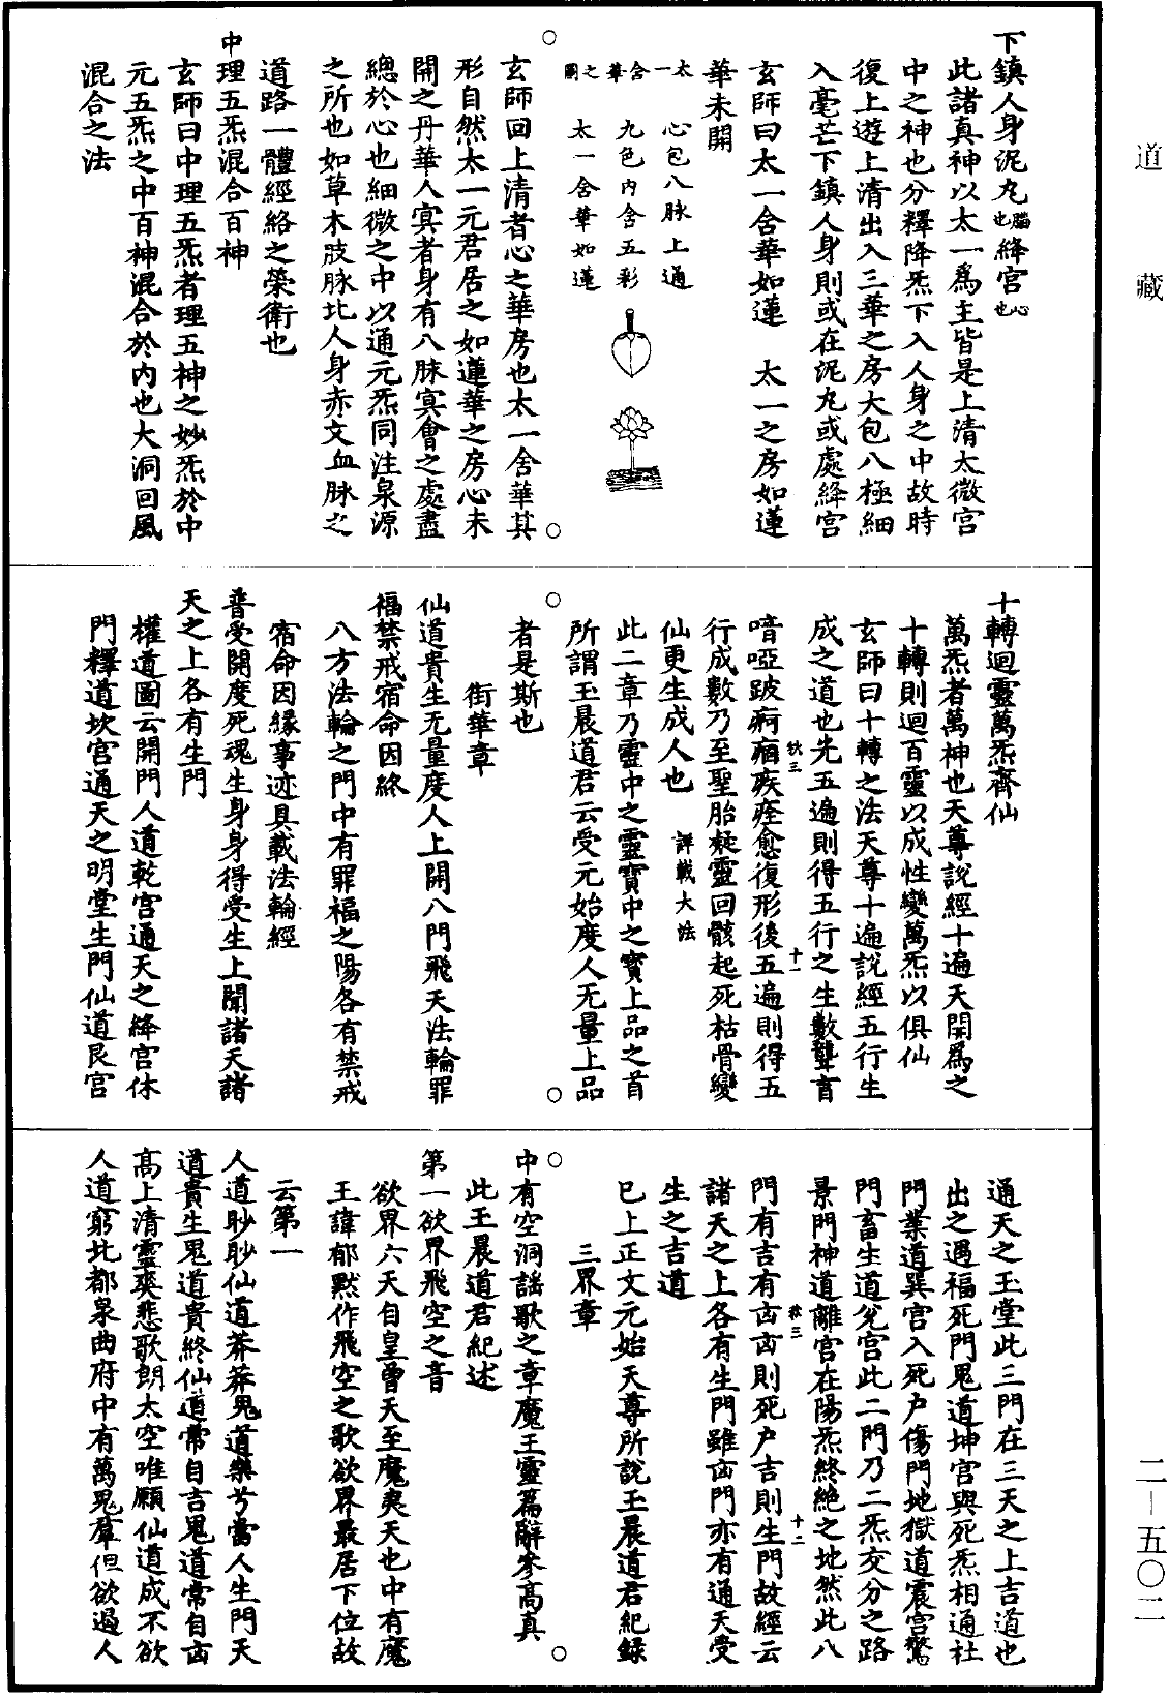 道藏
下鎮人身泥丸腦也絳宮心也
此諸真神以太一爲主皆是上清太微宮
中之神也分釋降炁下入人身之中故時
復上遊上清出入三華之房大包八極細
入毫芒下鎮人身則或在泥丸或處絳宮
玄師曰太一舍華如蓮　太一之房如蓮
華未開
太一舍華之圖
心包八脉上通
九色內含五彩
太一舍華如蓮
玄師回上清者心之華房也太一舍華其
形自然太一元君居之如蓮華之房心未
開之丹華人㝠者身有八脉㝠會之處盡
總於心也細微之中以通元炁同注泉源
之所也如草木肢脉比人身赤文血脉之
道路一體經絡之榮衛也
中理五炁混合百神
玄師曰中理五炁者理五神之妙炁於中
元五炁之中百神混合於内也大洞回風
混合之法
十轉迴靈萬炁齊仙
萬炁者萬神也天尊說經十遍天開爲之
十轉則迴百靈以成性變萬炁以俱仙
玄師曰十轉之法天尊十遍說經五行生
成之道也先五遍則得五行之生數聾盲
㱊三　十一
喑啞跛痾痼疾痊愈復形後五遍則得五
行成數乃至聖胎凝靈回骸起死枯骨變
仙更生成人也　詳載大法
此二章乃靈中之靈寶中之寶上品之首
所謂玉晨道君云受元始度人无量上品
者是斯也
街華章
仙道貴生无量度人上開八門飛天法輪罪
福禁戒宿命因終
八方法輪之門中有罪福之陽各有禁戒
宿命因緣事迹具載法輪經
普受開度死魂生身身得受生上聞諸天諸
天之上各有生門
權道圖云開門人道乾宮通天之絳宮休
門釋道坎宮通天之明堂生門仙道艮宮
通天之玉堂此三門在三天之上吉道也
出之遇福死門鬼道坤宮與死炁相通社
門業道巽宮入死户傷門地獄道震宮驚
門畜生道兌宮此二門乃二炁交分之路
景門神道離宮在陽炁終絶之地然此八
㱊三　十二
門有吉有凶凶則死户吉則生門故經云
諸天之上各有生門雖凶門亦有通天受
生之吉道
已上正文元始天尊所說玉晨道君紀錄
三界章
中有空洞謠歌之章魔王靈篇辭參高真
此王晨道君紀述
第一欲界飛空之音
欲界六天自皇曾天至魔夷天也中有魔
王諱郁默作飛空之歌欲界最居下位故
云第一
人道眇眇仙道莽莽鬼道樂兮當人生門天
道貴生鬼道貴終仙道常自吉鬼道常自凶
高上清靈爽悲歌朗太空唯願仙道成不欲
人道窮北都泉曲府中有萬鬼羣但欲遏人
二—五〇二